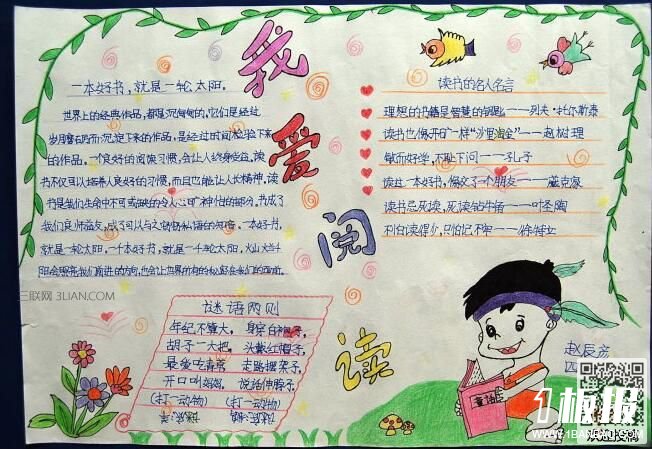 我爱阅读
一本好书，就是一轮太阳。
世界上的经典作品，都是沉甸甸的，它们是经过
岁月磨石而沉淀下来的作品，是经过时间检验下来
的作品。一个良好的阅读习惯，会让人终身受益。读
书不仅可以培养人良好的习惯，而且也能让人长精神，读
书是我们生命中不可或缺的令人心旷神怡的部分，书成了
我们良师益友，成了可以与之窃窃私语的知音。一本好书，
就是一轮太阳，一千本好书，就是一千轮太阳，
读书的名人名言
理想的书籍是智慧的钥匙——列夫·托尔斯泰
读书也像开矿一样“沙里淘金”——赵树理
敏而好学，不耻下问——孔子
读过一本好书，像交了一个朋友——臧克家
读书忌死读，死读钻牛角——叶圣陶
不怕读得少，只怕记不牢——徐特立
谜语两则
年纪不算大，
胡子一大把，
最爱吃青草
开口叫妈妈
(打一动物)
头戴红帽子，
走路摆架子，
说话伸脖子
(打一动物)
童话
赵辰彦
三联网 3LIAN.COM
1板报
WWW.1BANBAO.COM
欢迎投稿